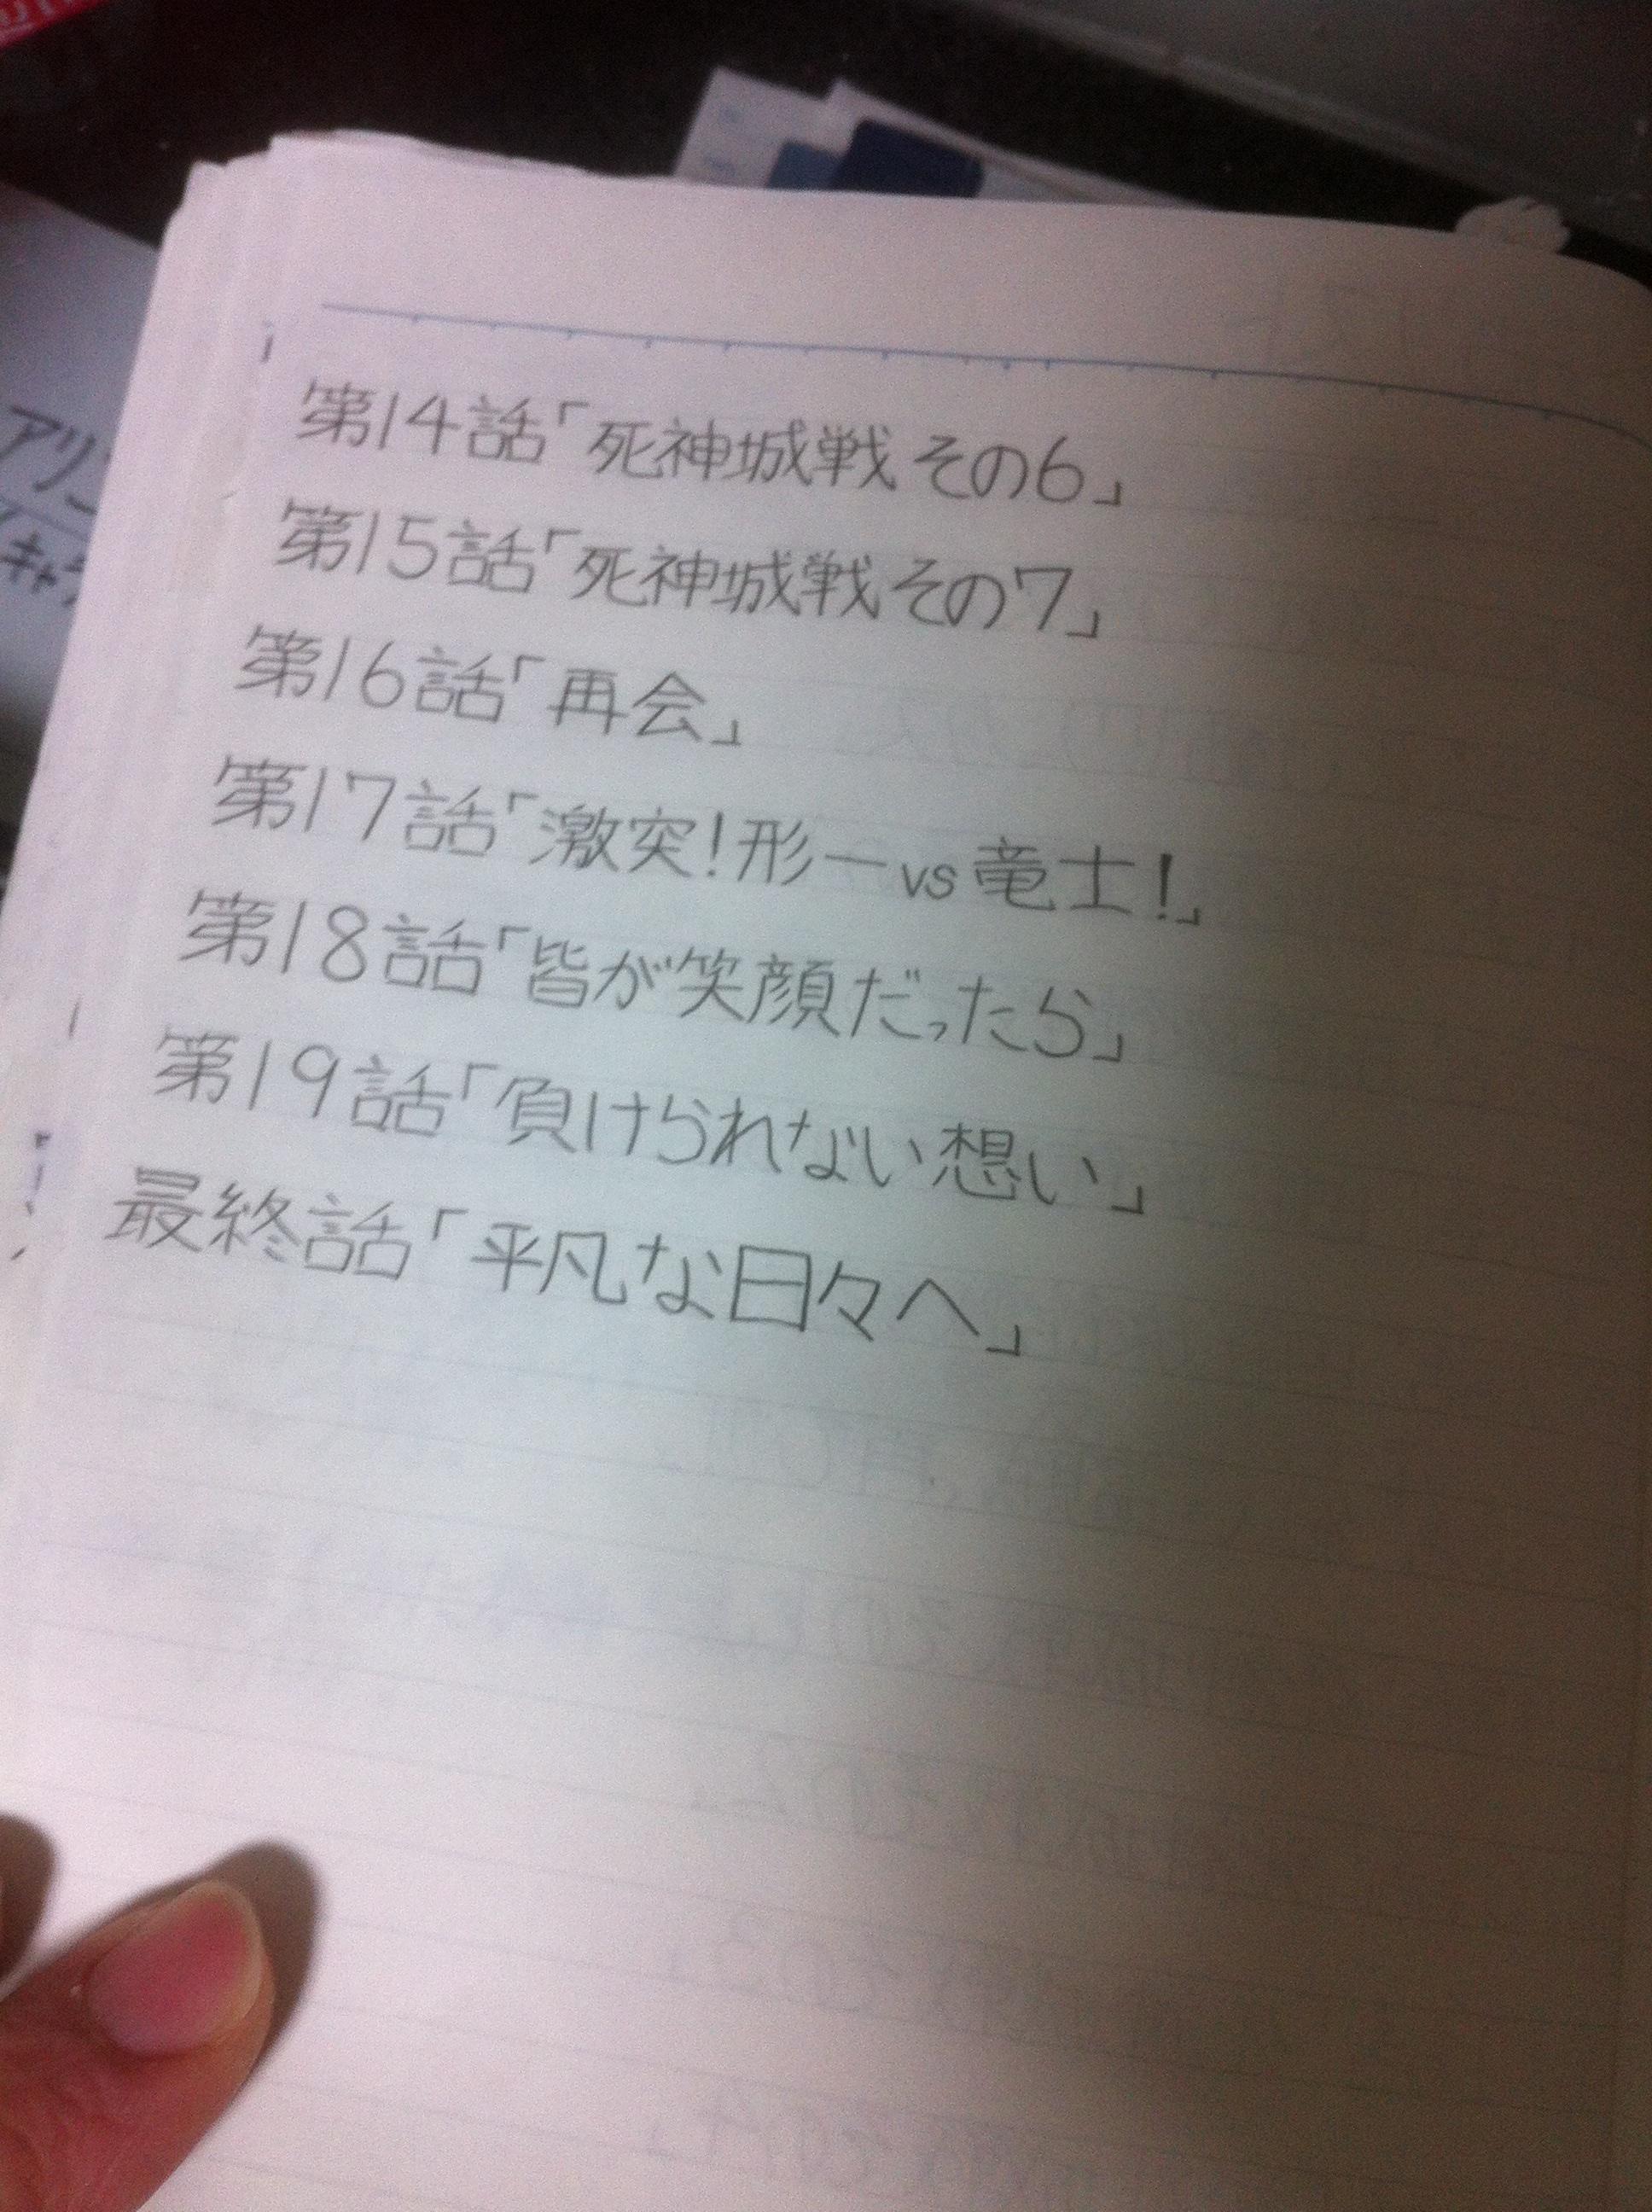 第14話「死神城戦 その6」
第15話「死神城戦 その7」
第16話「再会」
第17話「激突!形一vs竜士!」
第18話「皆が笑顔だったら」
第19話「負けられない想い」
最終話「平凡な日々へ」
アリ
キャラ